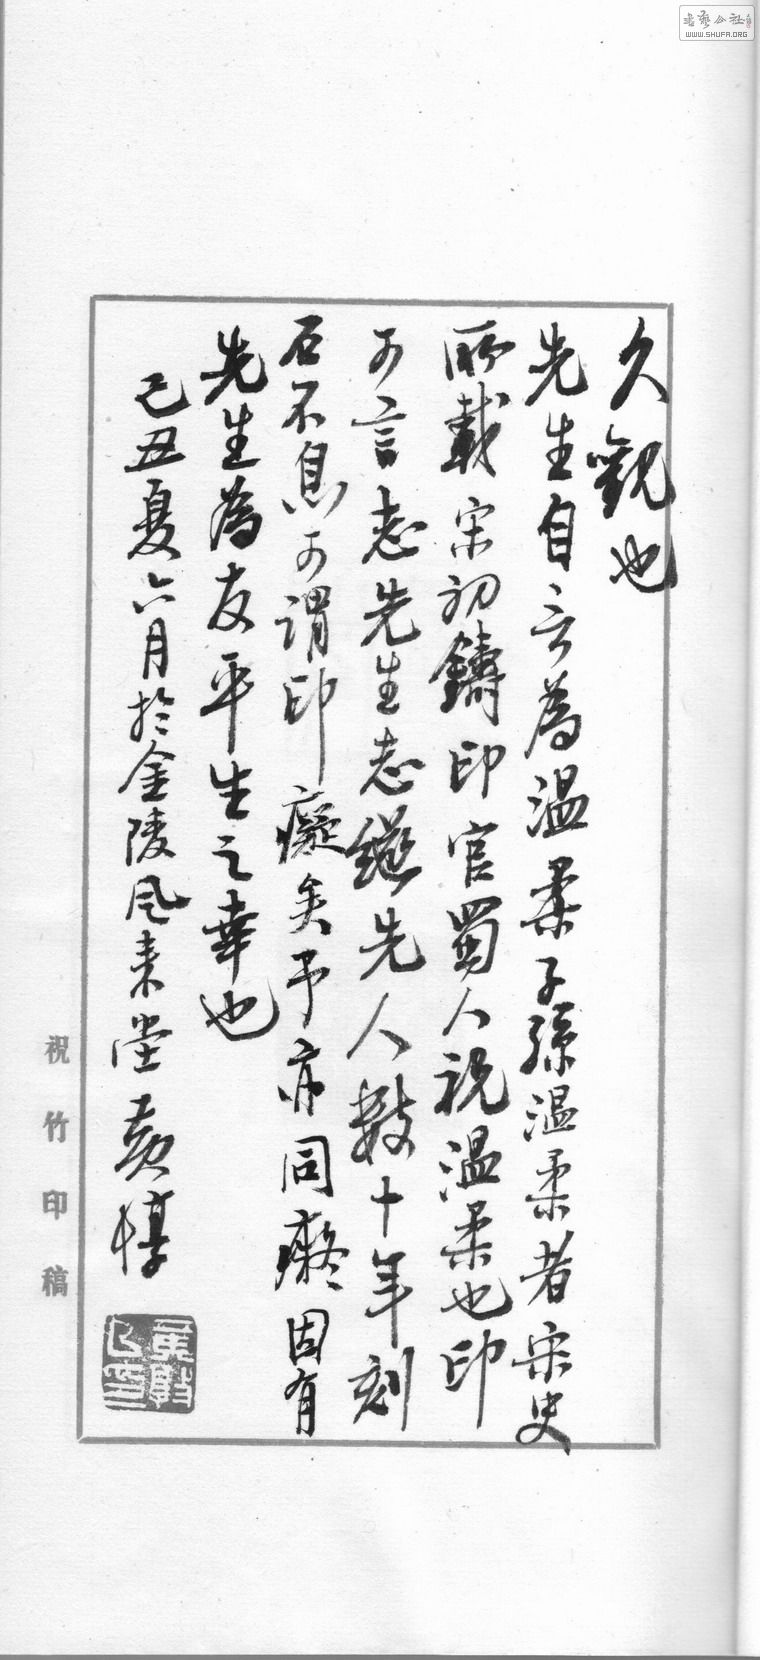 久觀也
先生自言為温柔子孫温柔者宋史
所載宋初鑄印官蜀人祝温柔也印
可言志先生志繼先人數十年刻
石不息可謂印癡矣予亦同癡固有
先生為友平生之幸也
己丑夏六月於金陵風來堂黃惇
祝竹印稿
書藝公社
WWW.SHUFA.ORG